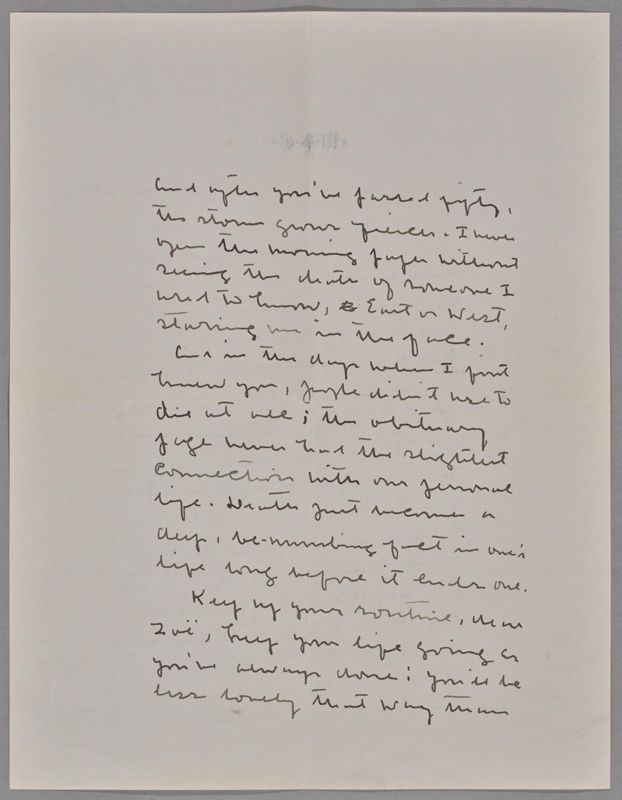 And after you've passed fifty,
the storm grows fiercer. I never
open the morning paper without
seeing the death of someone I
used to know, East or West,
staring me in the face.
And in the days when I first
knew you, people didn't use to
die at all; the obituary
page never had the slightest
connection with our personal
life. Death just becomes a
deep, be-numbing fact in one's
life long before it ends one.
Keep up your routine, dear
Zoë, keep your life going as
you've always done: you'll be
less lonely that way than